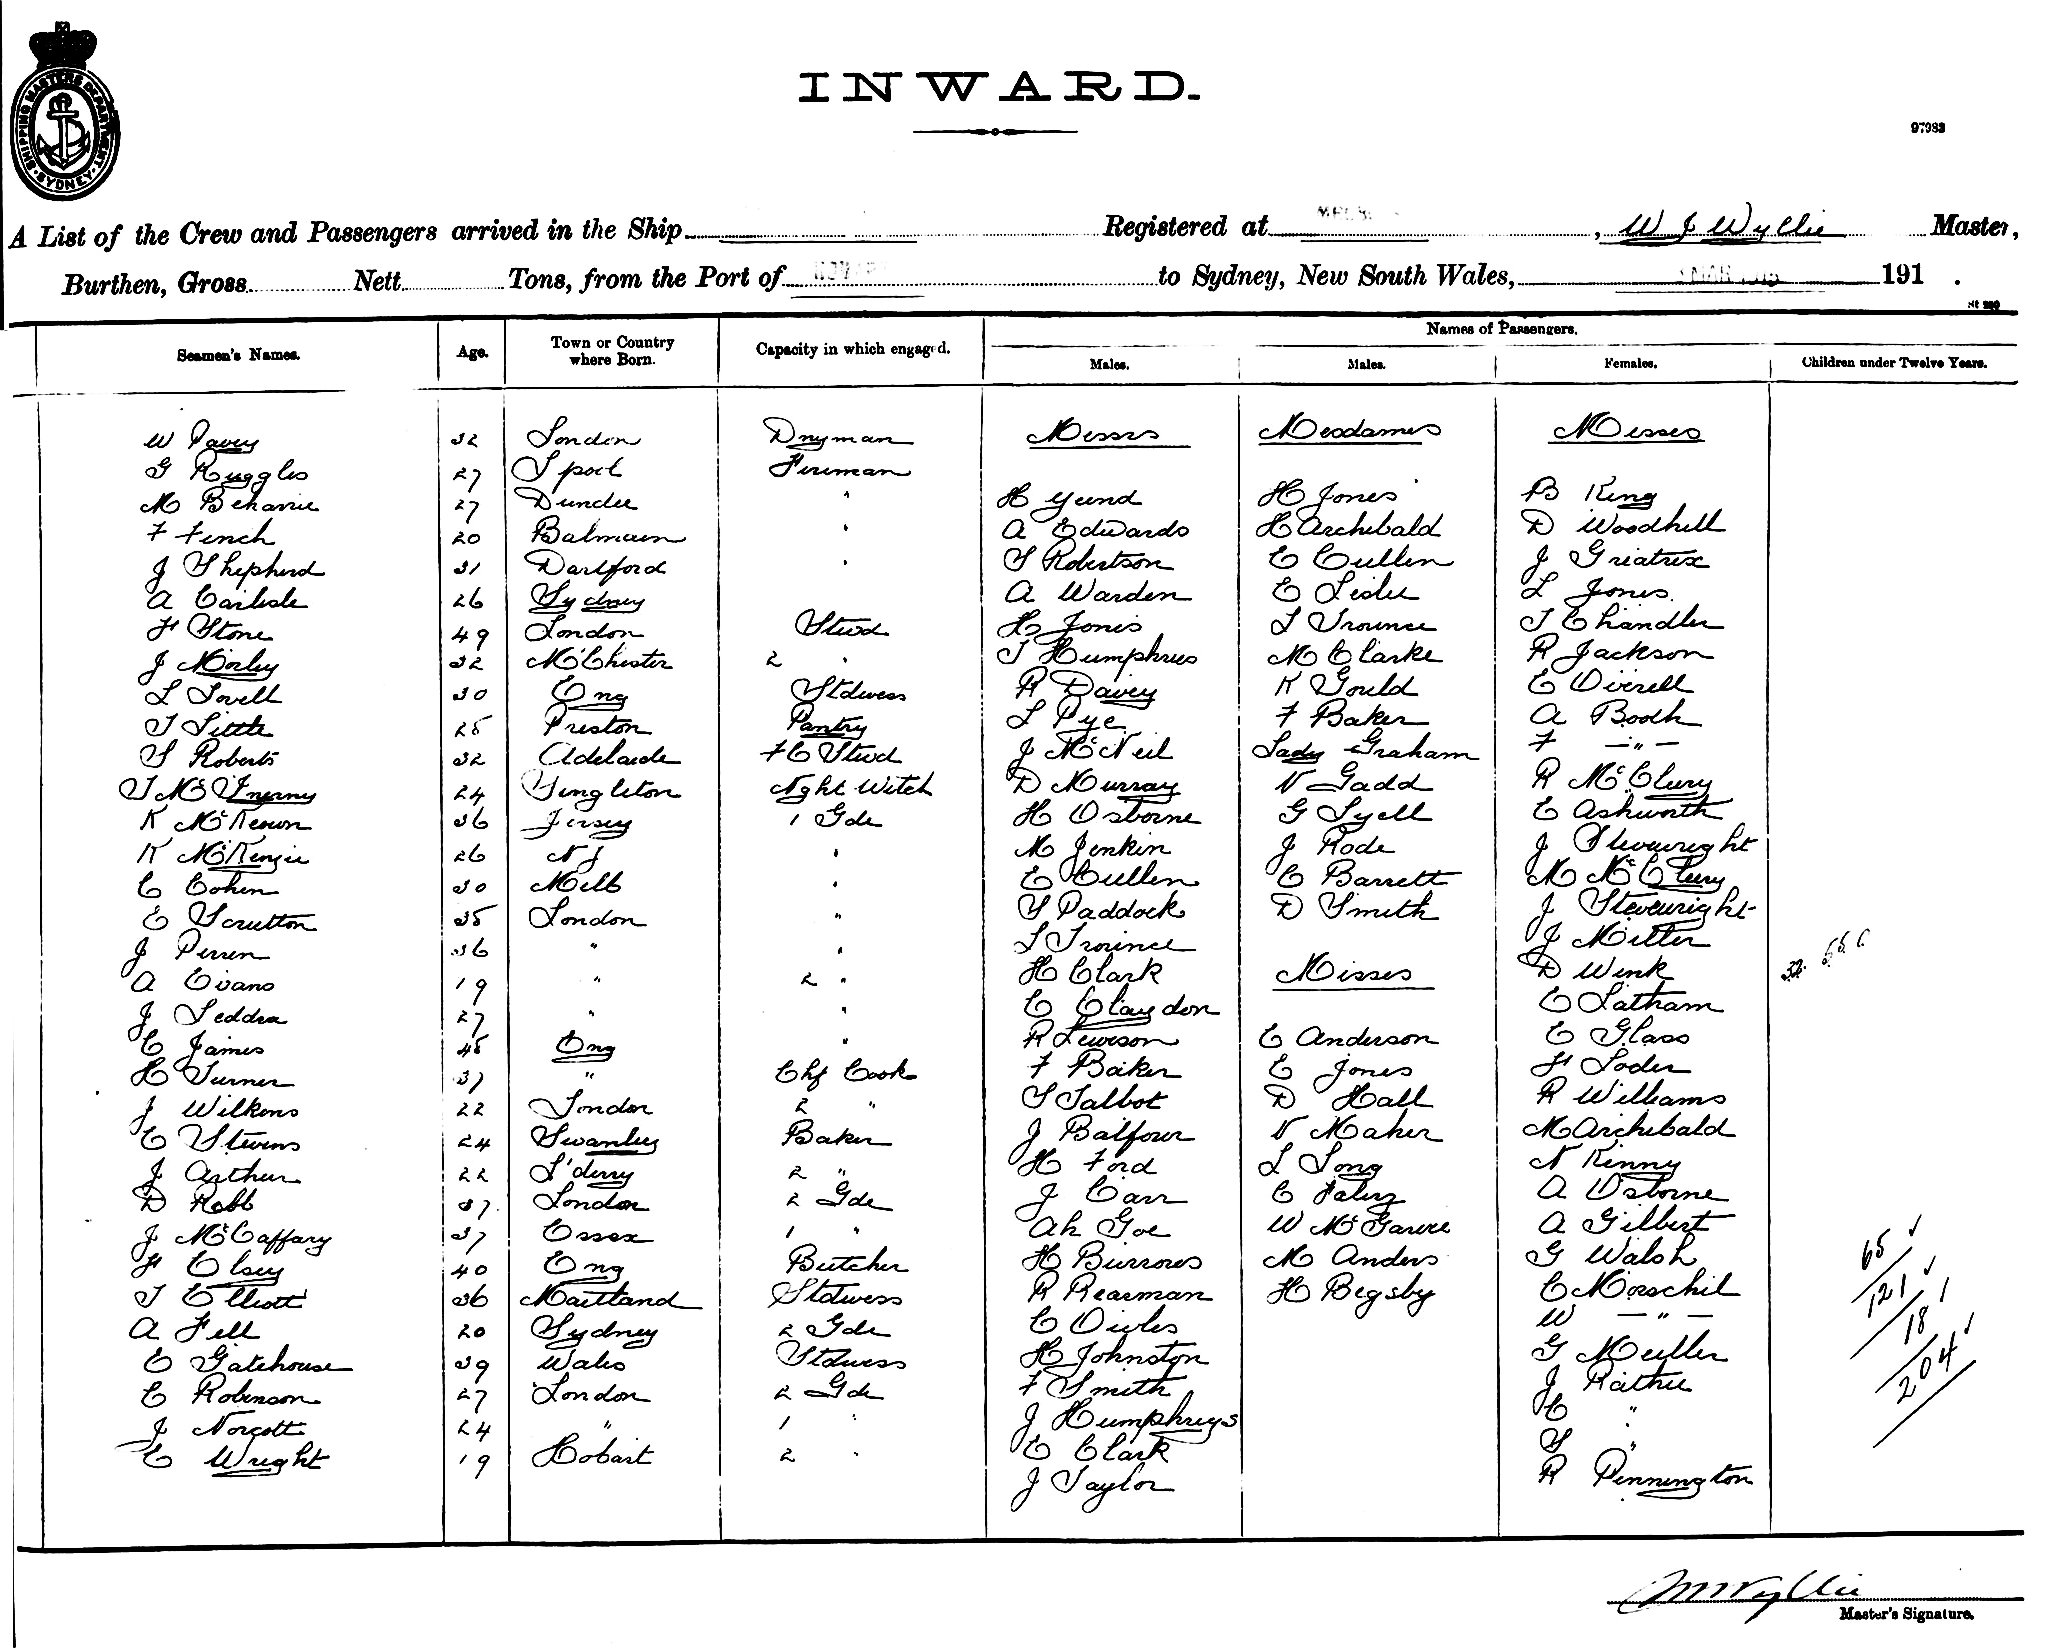 SHIPPING MASTERS DEPARTMENT
SYDNEY
INWARD.
97983
A List of the Crew and Passengers arrived in the Ship Registered at , W J Wyllie Master,
Burthen, Gross Nett Tons, from the Port of to Sydney, New South Wales, 191 .
Names of Passengers.
Seamen's Names. Age. Town or Country where Born. Capacity in which engaged. Males. Males. Females. Children under Twelve Years.
W Pavey 32 London Dnyman Messrs Mesdames Misses
G Ruggles 27 L'pool Fireman
M Behanie 27 Dundee " H Yeend H Jones B King
F Finch 20 Balmain " A Edwards H Archibald D Woodhill
J Shepherd 31 Dartford " S Robertson E Cullen J Griatrex
A Carlisle 26 Sydney A Warden E Lislie L Jones
H Stone 49 London Stwd H Jones L Trounce T Chandler
J Morley 32 M'Chester 2 " T Humphries M Clarke R Jackson
L Lovell 30 Eng Stdwess R Davey K Gould E Overell
T Little 25 Preston Pantry L Pye F Baker A Booth
S Roberts 32 Adelaide F C Stwd J McNeil Lady Graham F — " —
T McInerny 24 Singleton Night Wtch D Murray V Gadd R McClury
K McKeown 36 Jersey 1 Gde H Osborne G Lyell E Ashworth
K McKenzie 26 N Z " M Jenkin J Rode J Stevewright
C Cohen 30 Melb " E Cullen C Barrett M McClury
E Scrutton 35 London " S Paddock D Smith J Stevewright
J Perren 36 " " L Trounce J Miller
A Evans 19 " 2 " H Clark Misses D Wink
J Seddra 27 " " C Claydon E Latham
C James 45 Eng " R Lewison E Anderson E Glass
H Turner 37 " Chf Cook F Baker E Jones H Loder
J Wilkens 22 London 2 " S Talbot D Hall R Williams
C Stevens 24 Swanley Baker J Balfour V Maher M Archibald
J Arthur 22 L'derry 2 " H Ford L Long N Kenny
D Robb 37 London 2 Gde J Carr C A Osborne
J McCaffary 37 Essex 1 " Ah Goe W McGarvie A Gilbert
H Elsey 40 Eng Butcher H Burrows M Anders G Walsh
T Elliott 36 Maitland Stdwess R Rearman H Begsby C Morschil
A Fell 20 Sydney 2 Gde C W — " —
E Gatehouse 39 Wales Stdwess H Johnston G Muller
C Robinson 27 London 2 Gde F Smith J Rathie
J Norcott 24 " 1 " J Humphreys C "
E Wright 19 Hobart 2 " E Clark S "
J Taylor R Pennington
65
121
18
204
Master's Signature.